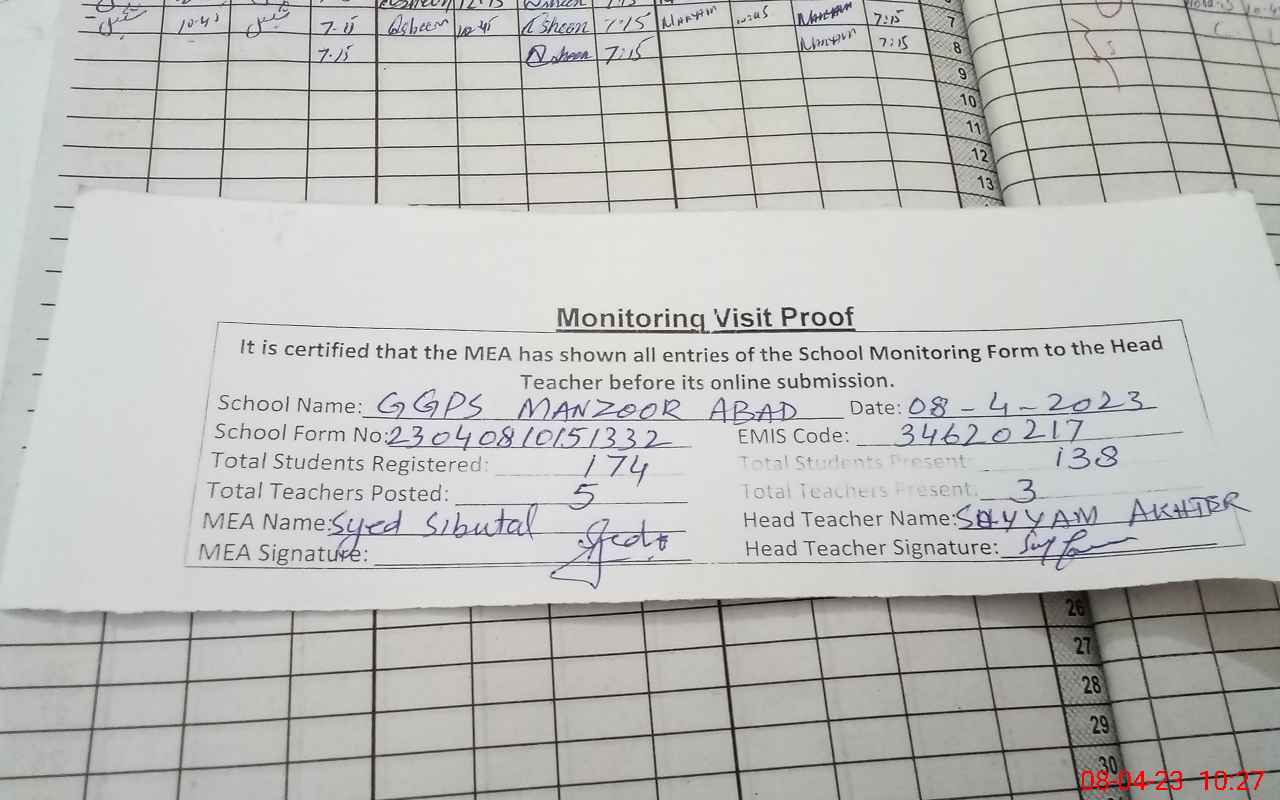 10-45 7-15 Qsheen 10-45 Qsheen 7:15 Maryam 10:45 Maryam 7:15 7
7.15 Qsheen 7:15 Maryam 7:15 8
9
10
11
12
13
Monitoring Visit Proof
It is certified that the MEA has shown all entries of the School Monitoring Form to the Head
Teacher before its online submission.
School Name: GGPS MANZOOR ABAD Date: 08-4-2023
School Form No: 23040810151332 EMIS Code: 34620217
Total Students Registered: 174 Total Students Present: 138
Total Teachers Posted: 5 Total Teachers Present: 3
MEA Name: Syed Sibutal Head Teacher Name: SAYYAM AKHTER
MEA Signature: Head Teacher Signature:
26
27
28
29
30
08-04-23 10:27